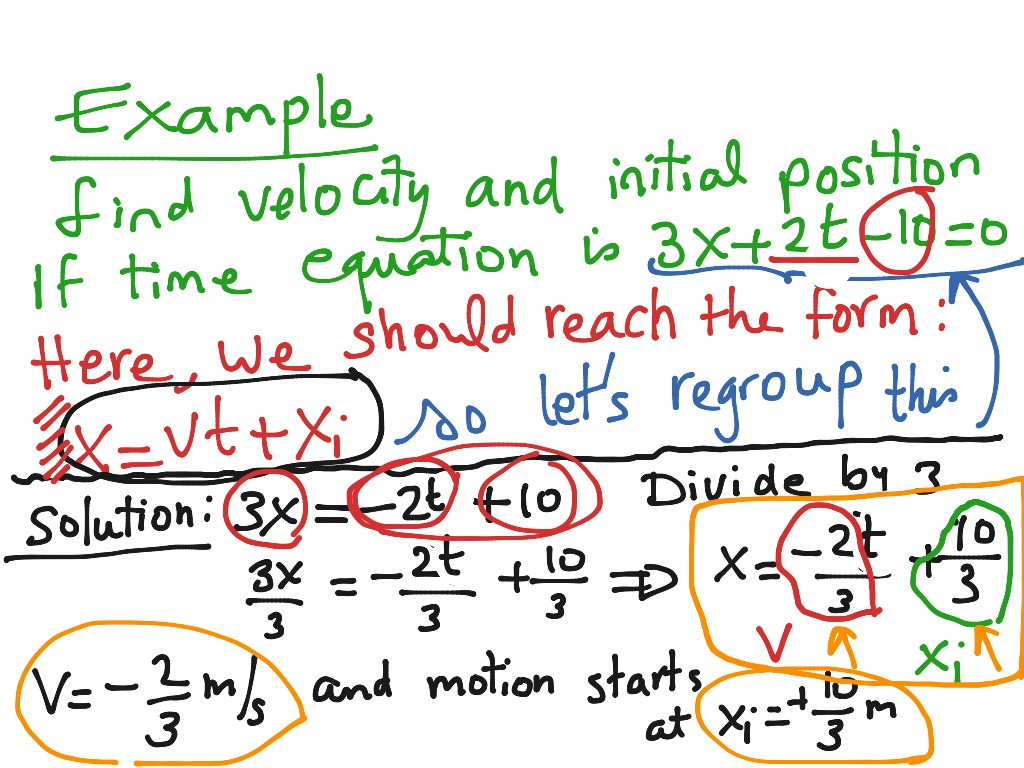 Example
find velocity and initial position
If time equation is 3x+2t-10=0
Here, we should reach the form:
x=vt+xi so let's regroup this
Solution: 3x=-2t+10 Divide by 3
3x/3 = -2t/3 + 10/3 ⇒ x=-2t/3 + 10/3
V xi
V=-2/3 m/s and motion starts
at xi=+10/3 m